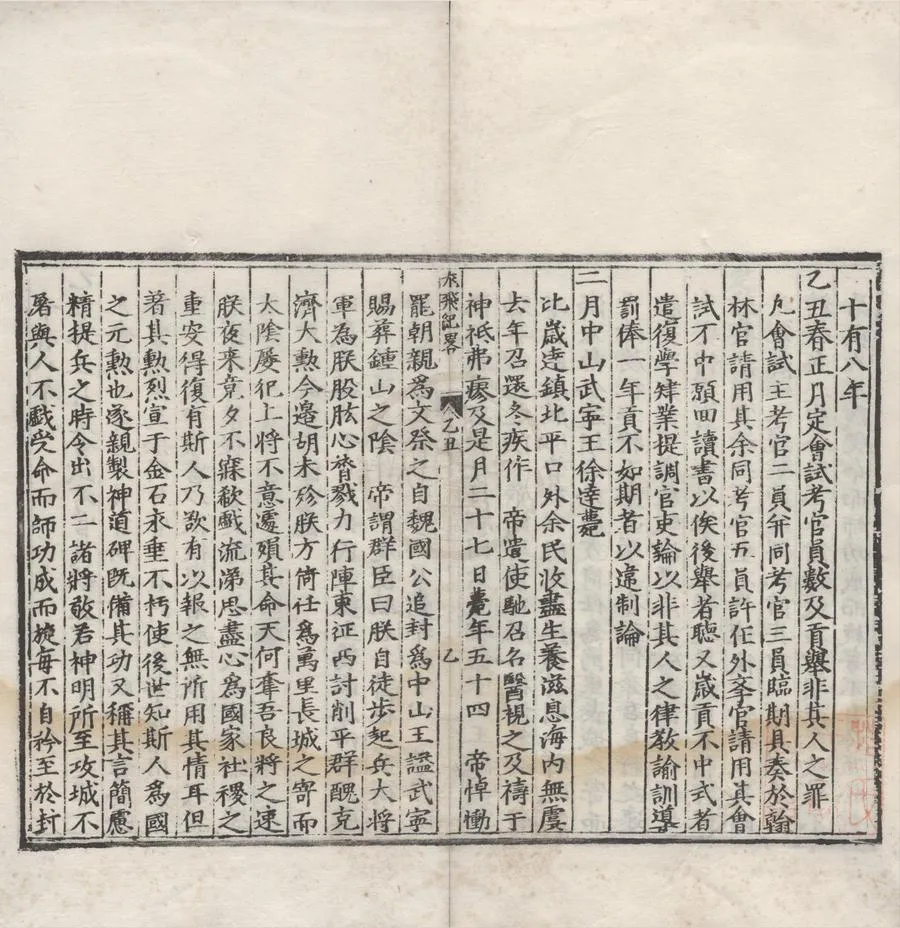 十有八年
乙丑春正月定會試考官員數及貢舉非其人之罪
凡會試主考官二員并同考官三員臨期具奏於翰
林官請用其余同考官五員許在外斈官請用其會
試不中願回讀書以俟後舉者聽又歲貢不中式者
遣復學肄業提調官吏論以非其人之律教諭訓導
罰俸一年貢不如期者以違制論
二月中山武寧王徐達薨
比歲逹鎮北平口外余民收盡生養滋息海内無虞
去年召還冬疾作 帝遣使馳召名醫視之及禱于
神祇弗瘳及是月二十七日薨年五十四 帝悼慟
飛紀畧 八乙丑 乙
罷朝親爲文祭之自魏國公追封爲中山王謚武寧
賜葬鍾山之陰 帝謂群臣曰朕自徒步起兵大將
軍為朕股肱心膂戮力行陣東征西討削平群醜克
濟大勲今邊胡未殄朕方倚任爲萬里長城之寄而
太陰屡犯上將不意遽殞其命天何奪吾良將之速
朕夜來竟夕不寐欷戱流涕思盡心爲國家社稷之
重安得復有斯人乃欲有以報之無所用其情耳但
著其勲烈宣于金石永垂不朽使後世知斯人爲國
之元勲也遂親製神道碑既備其功又稱其言簡慮
精提兵之時令出不二諸將敬若神明所至攻城不
暑與人不戱受命而師功成而旋每不自衿至於封